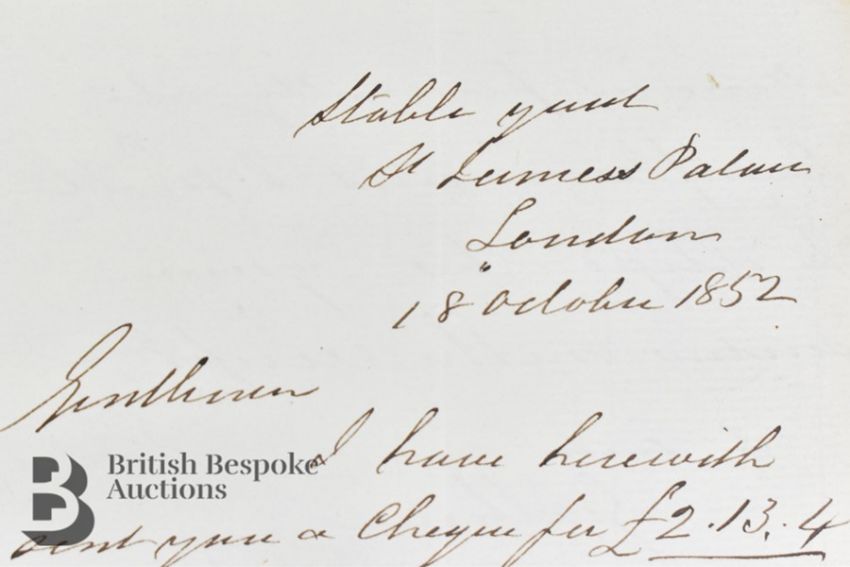 Stable yard
St Jamess Palace
London
18" October 1852
Gentlemen
I have herewith
sent you a Cheque for £2.13.4
British Bespoke
Auctions